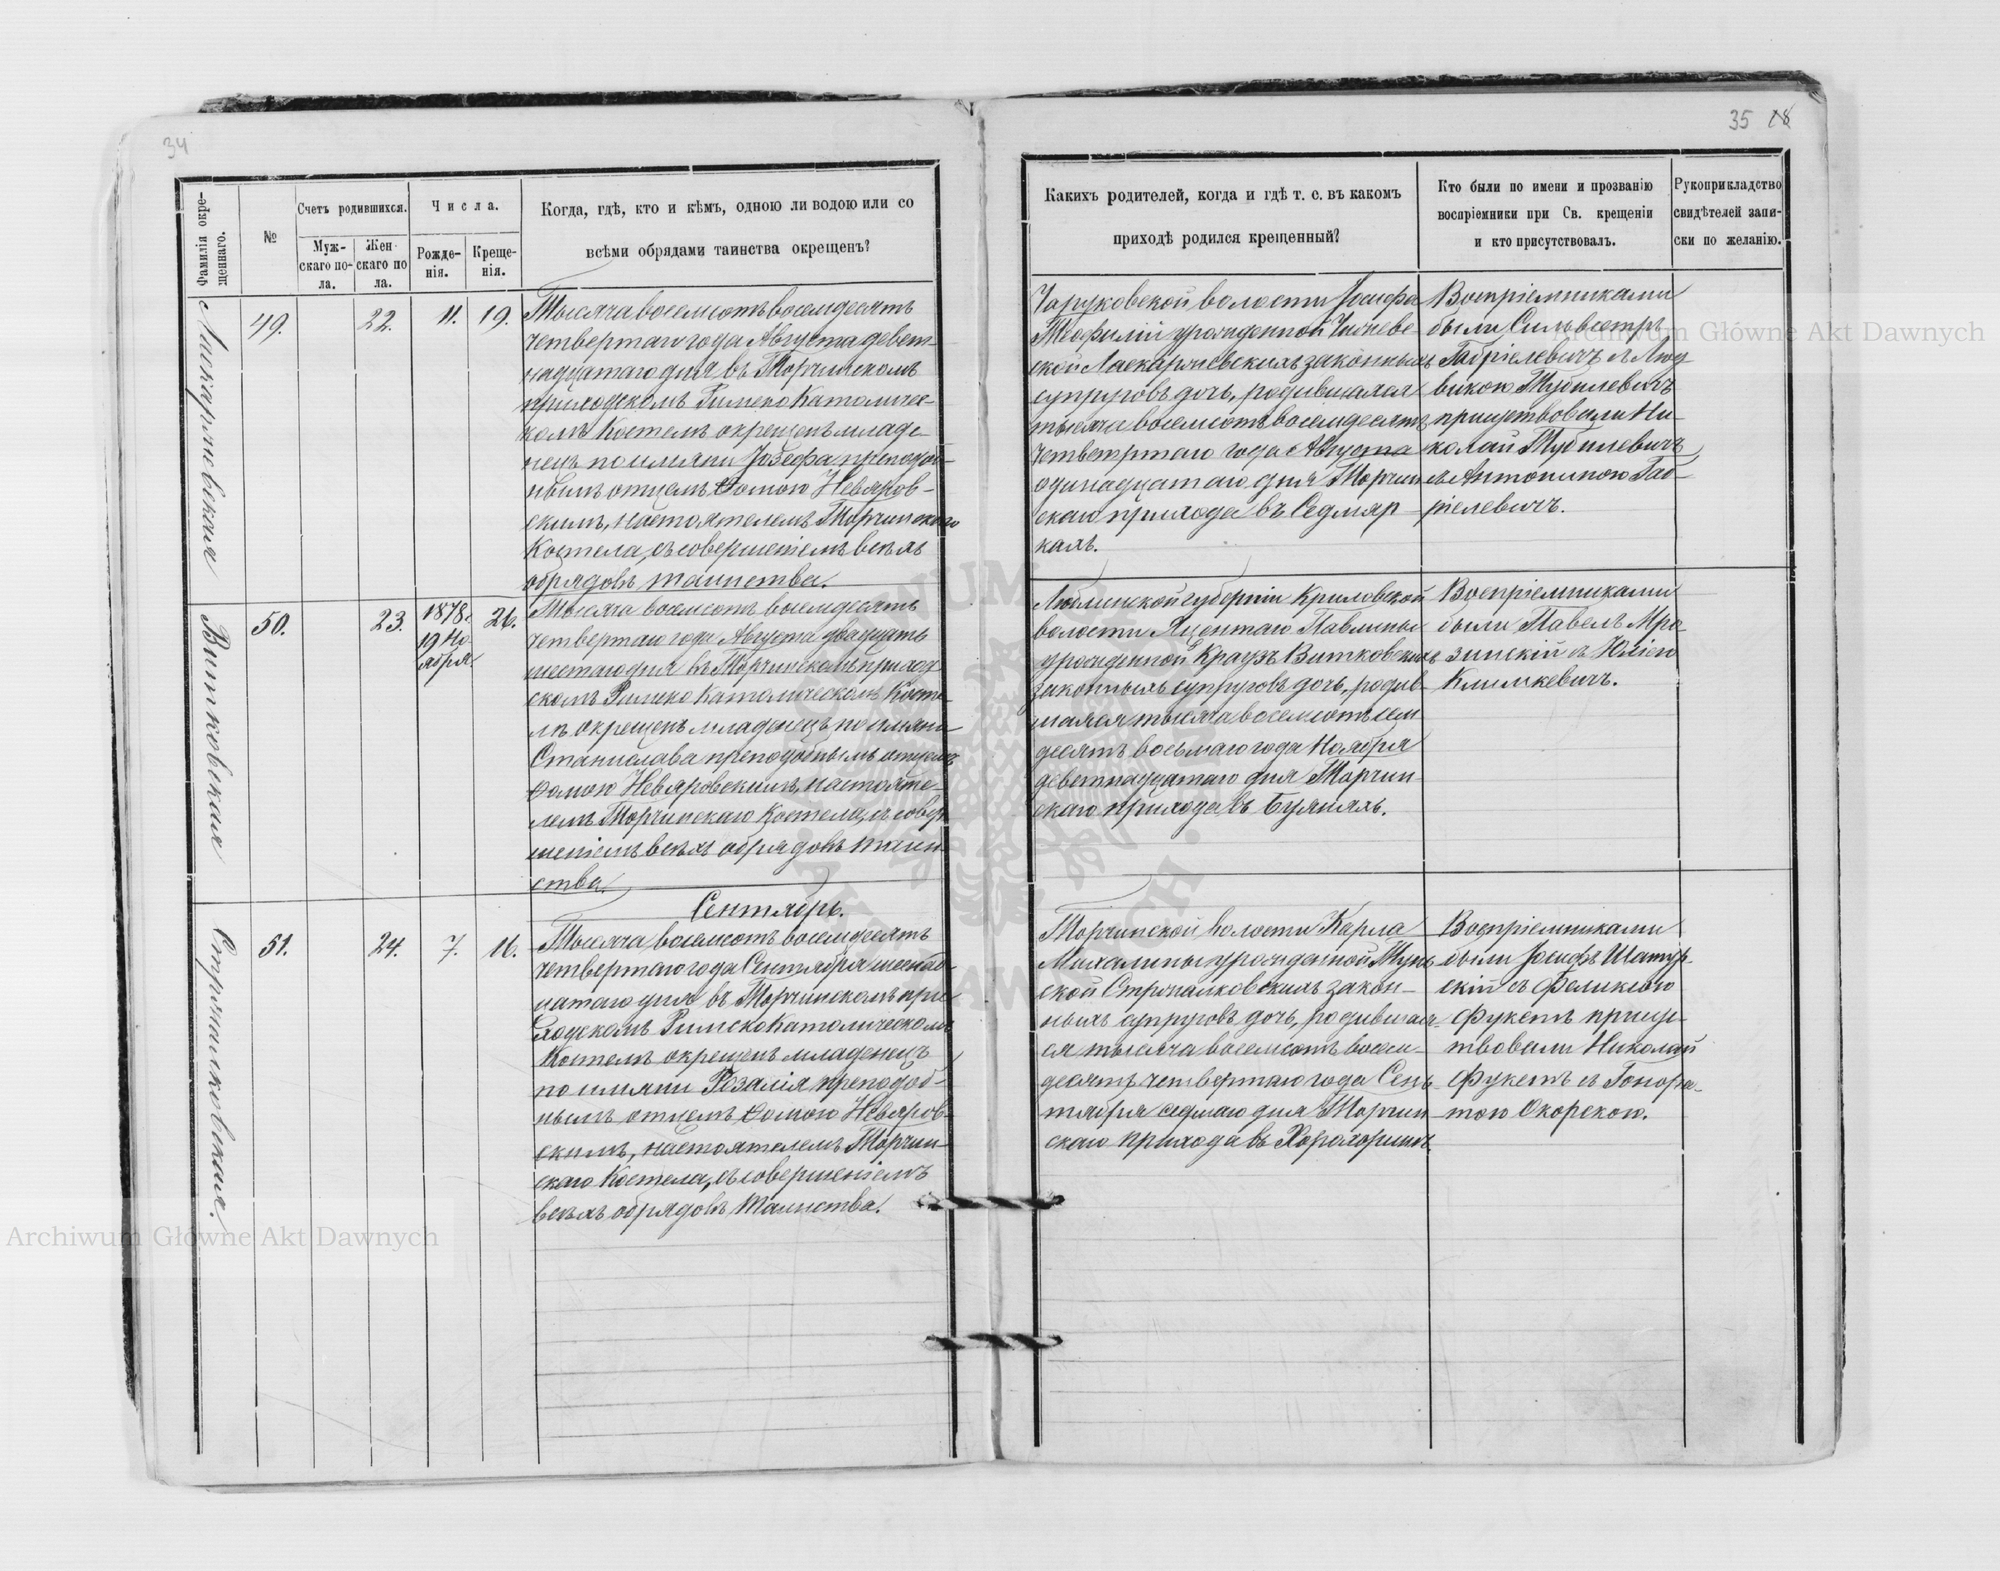 34
35 18
Фамилія окре-
щеннаго.
№
Счетъ родившихся.
Муж-
скаго по-
ла.
Жен-
скаго по
ла.
Числа.
Рожде-
нія.
Креще-
нія.
Когда, гдѣ, кто и кѣмъ, одною ли водою или со
всѣми обрядами таинства окрещенъ?
Какихъ родителей, когда и гдѣ т. е. въ какомъ
приходѣ родился крещенный?
Кто были по имени и прозванію
воспріемники при Св. крещеніи
и кто присутствовалъ.
Рукоприкладство
свидѣтелей запи-
ски по желанію.
Ласкаржевская
49.
22.
11.
19.
Тысяча восемсотъ восемдесятъ
четвертаго года Августа девят-
надцатаго дня въ Торчинскомъ
приходскомъ Римско Католичес-
комъ Костелѣ окрещенъ младе-
нецъ по имяни Јозефа преподоб-
нымъ отцемъ Ѳомою Невяров-
скимъ, настоятелемъ Торчинскаго
Костела, съ совершеніемъ всѣхъ
обрядовъ таинства.
Чаруковской волости Јосифа
Теофиліи урожденной
ской Ласкаржевскихъ законныхъ
супруговъ дочь, родившаяся
тысяча восемсотъ восемдесятъ
четвертаго года Августа
одинадцатаго дня Торчин
скаго прихода въ Седмяр-
кахъ.
Воспріемниками
были Сильвестръ
Габріелевичъ и Люд
викою Тубилевичъ
присутствовали Ни-
колай Тубилевичъ
съ Антониною Габ-
ріелевичъ.
Витковская
50.
23.
1878 г.
19 Но-
ября
26.
Тысяча восемсотъ восемдесятъ
четвертаго года Августа двадцать
шестаго дня въ Торчинскомъ приход
скомъ Римско Католическомъ Косте-
лѣ окрещенъ младенецъ по имяни
Станислава преподобнымъ отцемъ
Ѳомою Невяровскимъ, настояте-
лемъ Торчинскаго Костела, съ совер-
шеніемъ всѣхъ обрядовъ таин-
ства.
Люблинской губерніи Криловской
волости Яцентаго Павлины
урожденной Краузъ Витковскихъ
законныхъ супруговъ дочь, родив-
шаяся тысяча восемсотъ сем
десятъ восьмаго года Ноября
девятнадцатаго дня Торчин-
скаго прихода, въ Буянахъ.
Воспріемниками
были Павелъ Мро-
зинскій съ Юліею
Климкевичъ.
Сентябрь.
51.
24.
7.
16.
Тысяча восемсотъ восемдесятъ
четвертаго года Сентября шестнад-
цатаго дня въ Торчинскомъ при
ходскомъ Римско Католическомъ
Костелѣ окрещенъ младенецъ
по имяни Розалія преподоб-
нымъ отцемъ Ѳомою Невяров-
скимъ, настоятелемъ Торчин-
скаго Костела, съ совершеніемъ
всѣхъ обрядовъ таинства.
Торчинской волости Карла
Михалины урожденной
ской законн-
ныхъ супруговъ дочь, родившая-
ся тысяча восемсотъ восем-
десятъ четвертаго года Сен-
тября седмаго дня Торчин
скаго прихода въ Хорохоринѣ.
Воспріемниками
были Јосифъ Шатур-
скій съ Феликсою
Фукетъ присут-
твовали Николай
Фукетъ съ Гонора-
тою Окорскою.
Archiwum Główne Akt Dawnych
Archiwum Główne Akt Dawnych